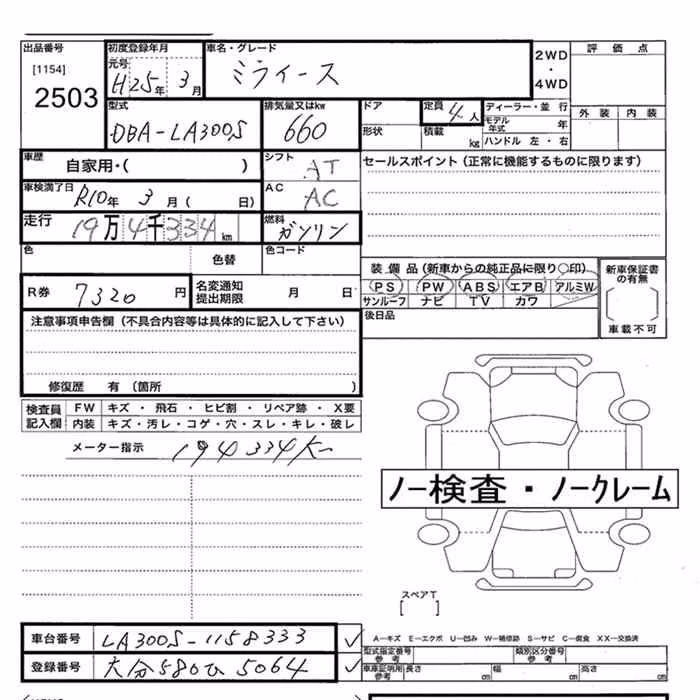 出品番号 初度登録年月 車名・グレード 評価点
[1154] 元号 H25年 3月 ミライース 2WD・4WD
2503
型式 排気量又はkw ドア 定員 4人 ディーラー・並行 外装 内装
DBA-LA300S 660 形状 積載 kg モデル年式 年
ハンドル 左・右
車歴 自家用・( ) シフト AT セールスポイント(正常に機能するものに限ります)
車検満了日 R10年 3月( 日) AC AC
走行 19万4千334km 燃料 ガソリン
色 色替 色コード
装備品(新車からの純正品に限り○印) 新車保証書の有無
R券 7320円 名変通知提出期限 月 日 PS PW ABS エアB アルミW
サンルーフ ナビ TV カワ
後日品 車載不可
注意事項申告欄(不具合内容等は具体的に記入して下さい)
修復歴 有(箇所 )
検査員記入欄 FW キズ・飛石・ヒビ割・リペア跡・X要
内装 キズ・汚レ・コゲ・穴・スレ・キレ・破レ
メーター指示 194334K
ノー検査・ノークレーム
スペアT
[ ]
車台番号 LA300S-1158333 ✓ A―キズ E―エクボ U―凹み W―補修跡 S―サビ C―腐食 XX―交換済
登録番号 大分580ひ5064 ✓ 型式指定番号 参考 類別区分番号 参考
車庫証明用 参考 長さ cm 幅 cm 高さ cm